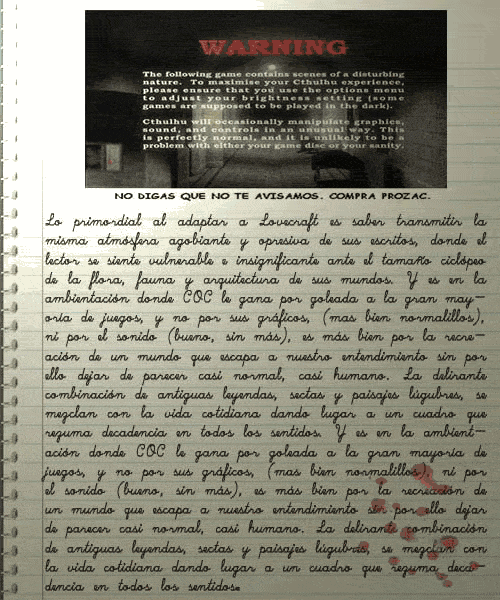 WARNING
The following game contains scenes of a disturbing
nature. To maximise your Cthulhu experience,
please ensure that you use the options menu
to adjust your brightness setting (some
games are supposed to be played in the dark).
Cthulhu will occasionally manipulate graphics,
sound, and controls in an unusual way. This
is perfectly normal, and it is unlikely to be a
problem with either your game disc or your sanity.
NO DIGAS QUE NO TE AVISAMOS. COMPRA PROZAC.
Lo primordial al adaptar a Lovecraft es saber transmitir la
misma atmósfera agobiante y opresiva de sus escritos, donde el
lector se siente vulnerable e insignificante ante el tamaño ciclópeo
de la flora, fauna y arquitectura de sus mundos. Y es en la
ambientación donde COC le gana por goleada a la gran may-
oría de juegos, y no por sus gráficos, (mas bien normalillos),
ni por el sonido (bueno, sin más), es más bien por la recre-
ación de un mundo que escapa a nuestro entendimiento sin por
ello dejar de parecer casi normal, casi humano. La delirante
combinación de antiguas leyendas, sectas y paisajes lúgubres, se
mezclan con la vida cotidiana dando lugar a un cuadro que
rezuma decadencia en todos los sentidos. Y es en la ambient-
ación donde COC le gana por goleada a la gran mayoría de
juegos, y no por sus gráficos, (mas bien normalillos), ni por
el sonido (bueno, sin más), es más bien por la recreación de
un mundo que escapa a nuestro entendimiento sin por ello dejar
de parecer casi normal, casi humano. La delirante combinación
de antiguas leyendas, sectas y paisajes lúgubres, se mezclan con
la vida cotidiana dando lugar a un cuadro que rezuma deca-
dencia en todos los sentidos.